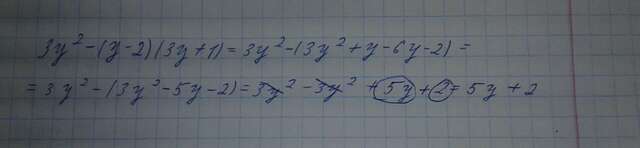 3y² - (y - 2)(3y + 1) = 3y² - (3y² + y - 6y - 2) =
= 3y² - (3y² - 5y - 2) = 3y² - 3y² + 5y + 2 = 5y + 2